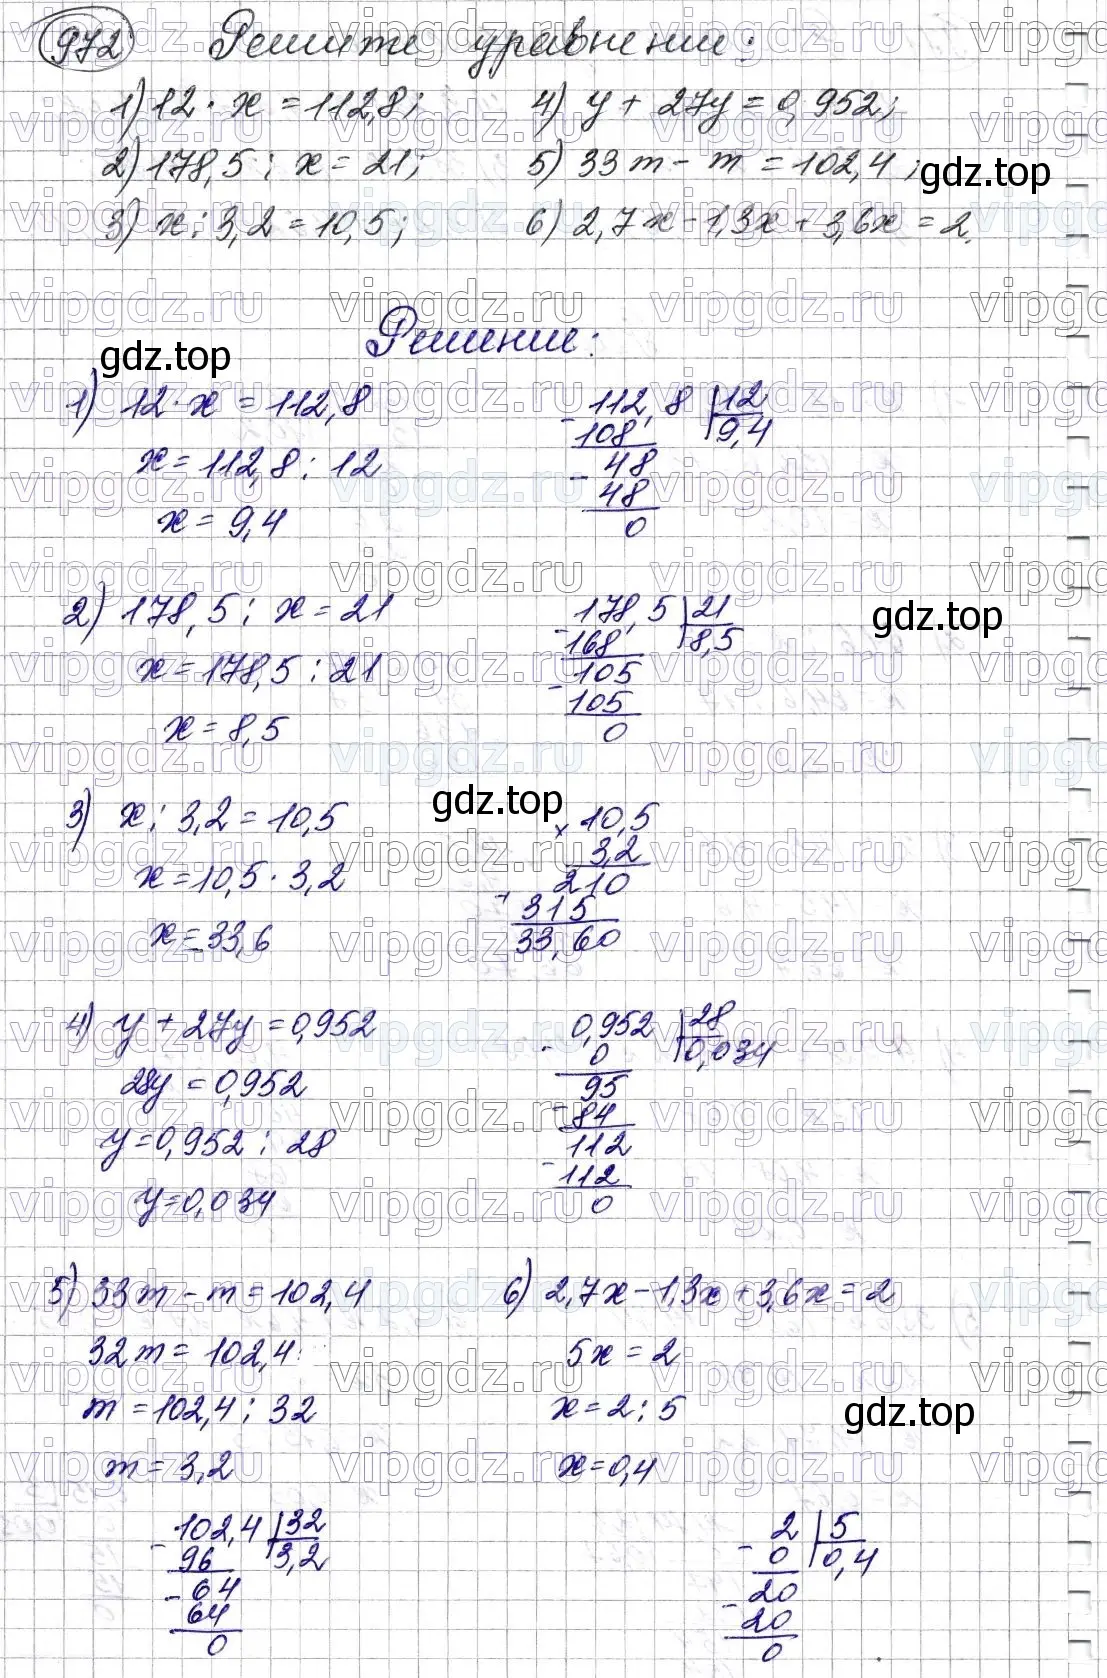 972 Решите уравнение:
1) 12 · x = 112,8; 4) y + 27y = 0,952;
2) 178,5 : x = 21; 5) 33m - m = 102,4;
3) x : 3,2 = 10,5; 6) 2,7x - 1,3x + 3,6x = 2.
gdz.top
Решение:
gdz.top
1) 12 · x = 112,8
x = 112,8 : 12
x = 9,4
- 112,8 | 12
108 9,4
- 48
48
0
2) 178,5 : x = 21
x = 178,5 : 21
x = 8,5
- 178,5 | 21
168 8,5
- 105
105
0
gdz.top
3) x : 3,2 = 10,5
x = 10,5 · 3,2
x = 33,6
gdz.top
× 10,5
3,2
+ 210
315
33,60
4) y + 27y = 0,952
28y = 0,952
y = 0,952 : 28
y = 0,034
- 0,952 | 28
0 0,034
95
- 84
112
- 112
0
5) 33m - m = 102,4
32m = 102,4
m = 102,4 : 32
m = 3,2
- 102,4 | 32
96 3,2
- 64
64
0
6) 2,7x - 1,3x + 3,6x = 2
5x = 2
x = 2 : 5
x = 0,4
gdz.top
- 2 | 5
0 0,4
- 20
20
0
vipgdz.ru